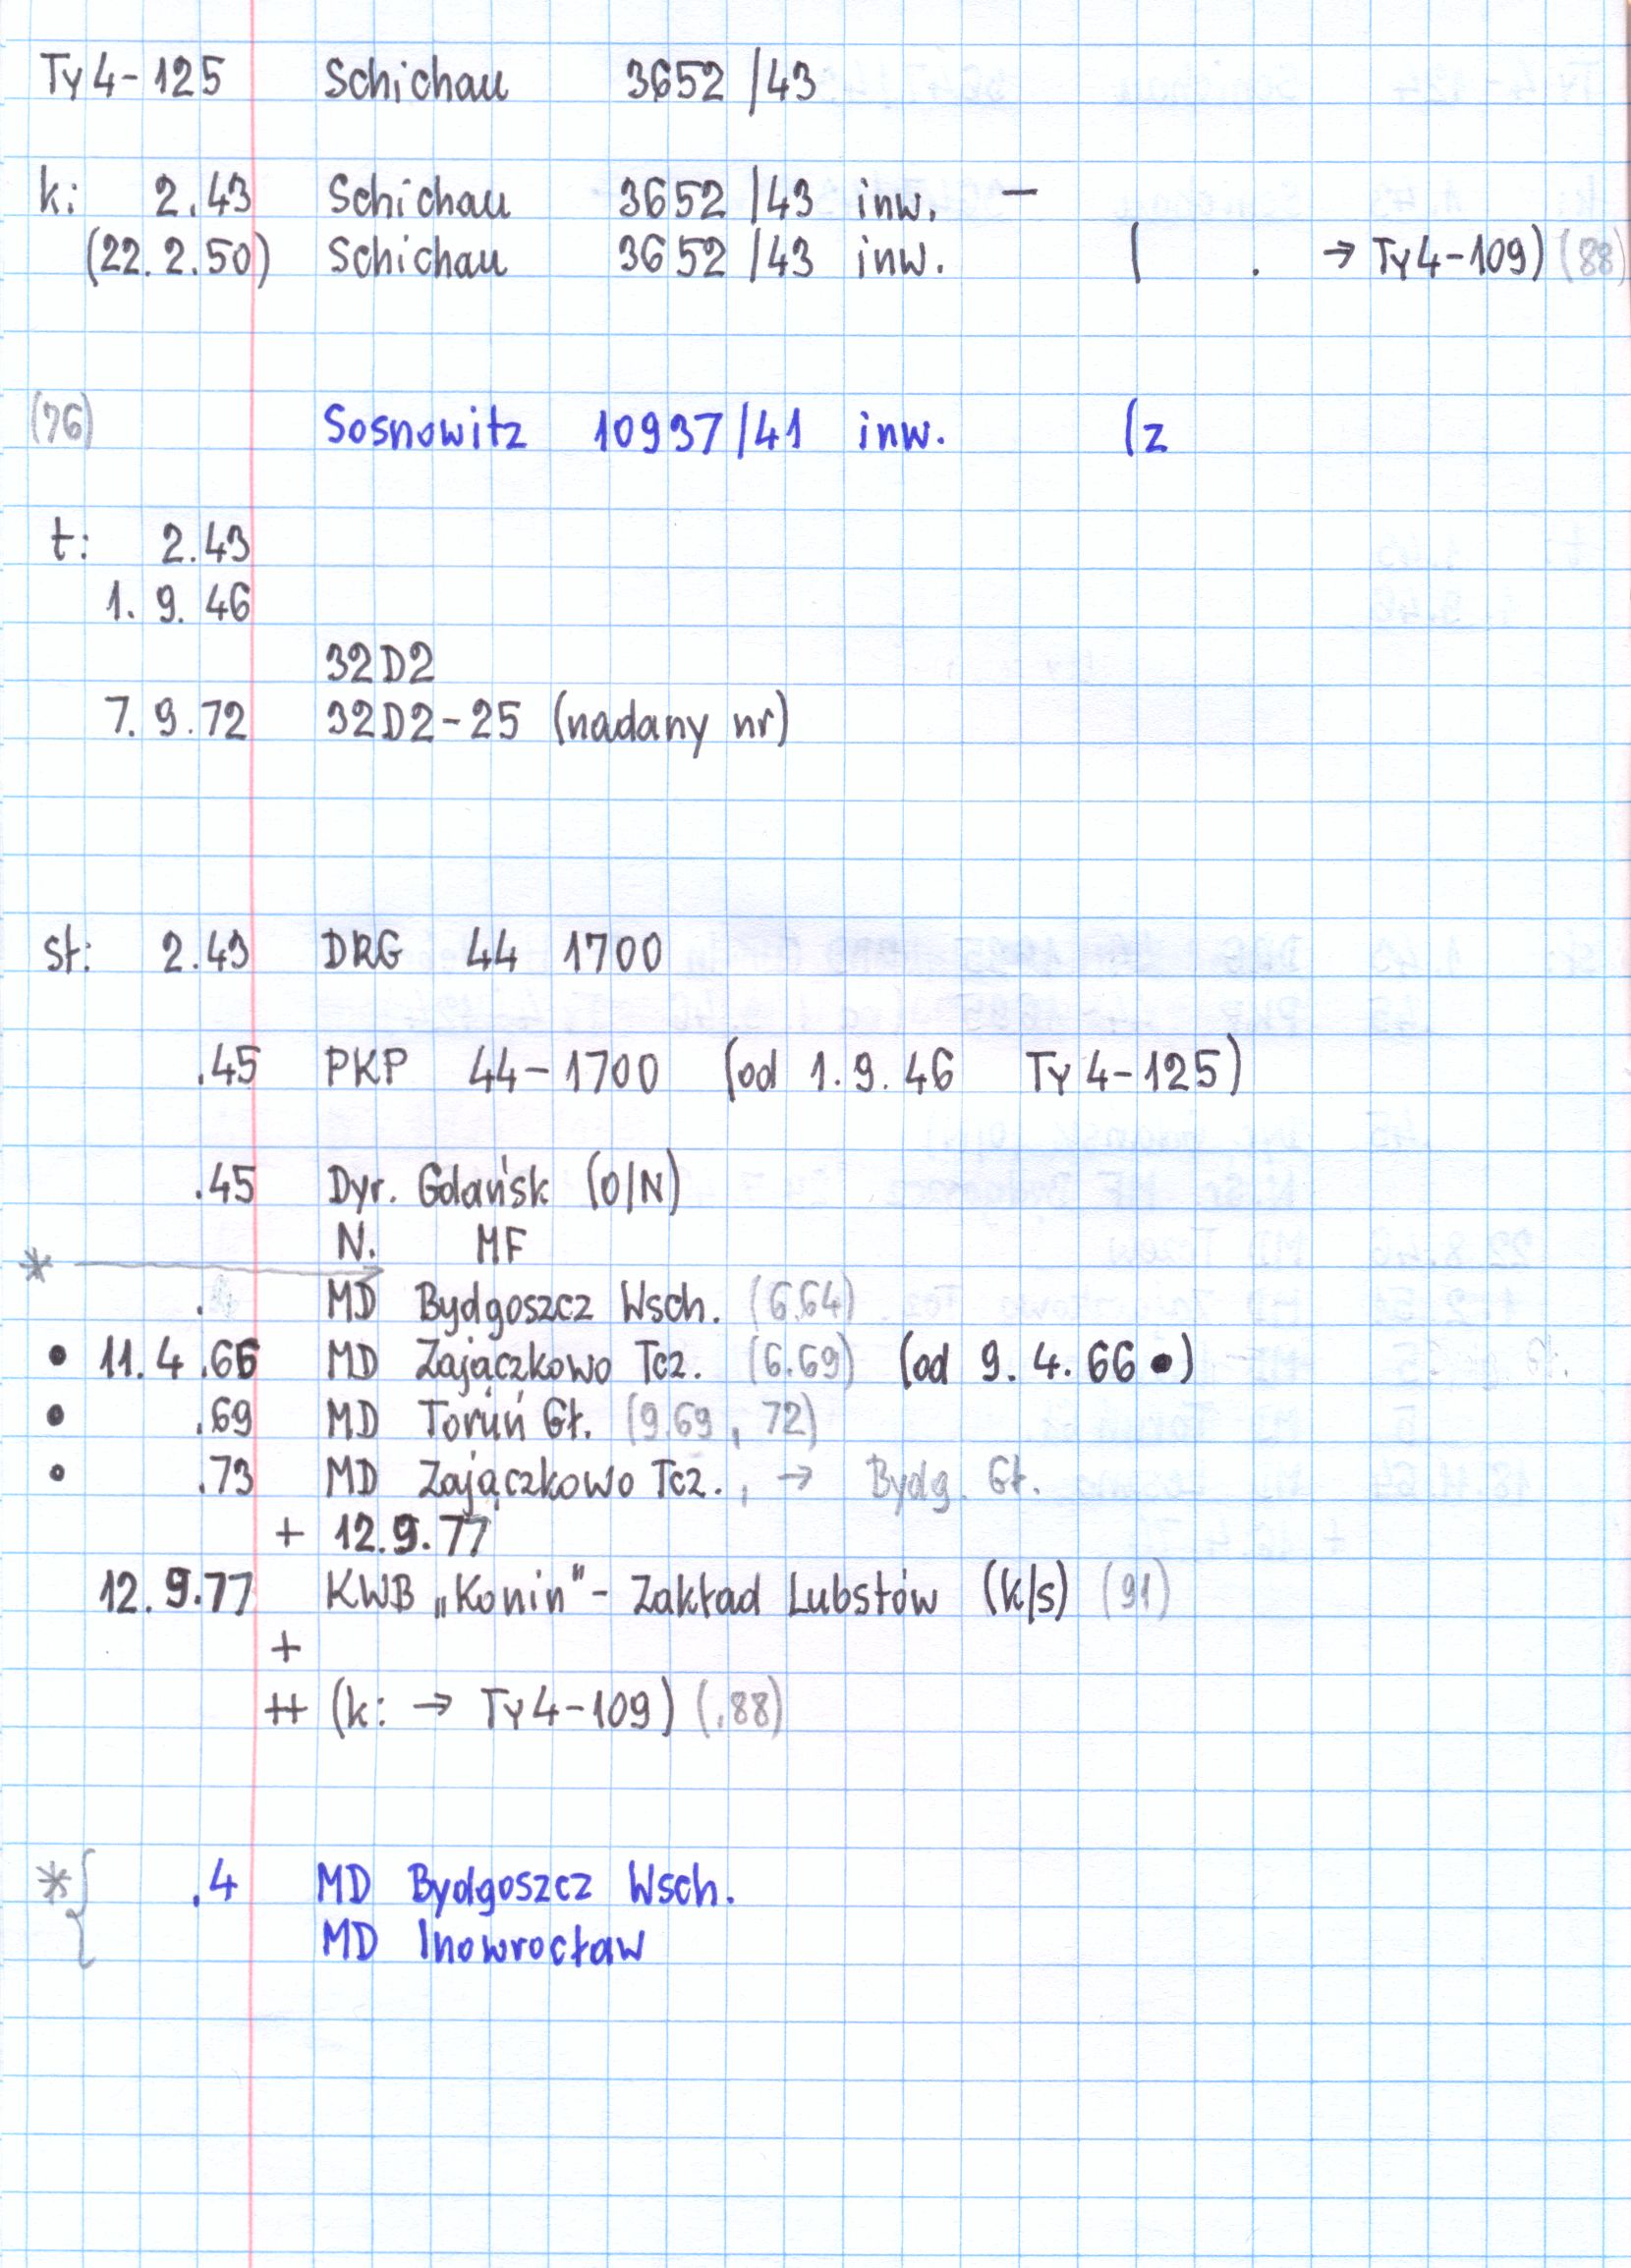 Ty4-125 Schichau 3652/43
k: 2.43 Schichau 3652/43 inw. –
(22.2.50) Schichau 3652/43 inw. ( . → Ty4-109) (88)
(76) Sosnowitz 10937/41 inw. (z
t: 2.43
1. 9. 46
32D2
7. 9.72 32D2-25 (nadany nr)
st: 2.43 DRG 44 1700
.45 PKP 44-1700 (od 1.9.46 Ty4-125)
.45 Dyr. Gdańsk (O/N)
N. MF
*
. MD Bydgoszcz Wsch. (6.64)
• 11.4.66 MD Zajączkowo Tcz. (6.69) (od 9.4.66 •)
• .69 MD Toruń Gł. (9.69, 72)
• .73 MD Zajączkowo Tcz., → Bydg. Gł.
+ 12.9.77
12.9.77 KWB „Konin" - Zakład Lubstów (k/s) (91)
+
++ (k: → Ty4-109) (.88)
* { .4 MD Bydgoszcz Wsch.
MD Inowrocław